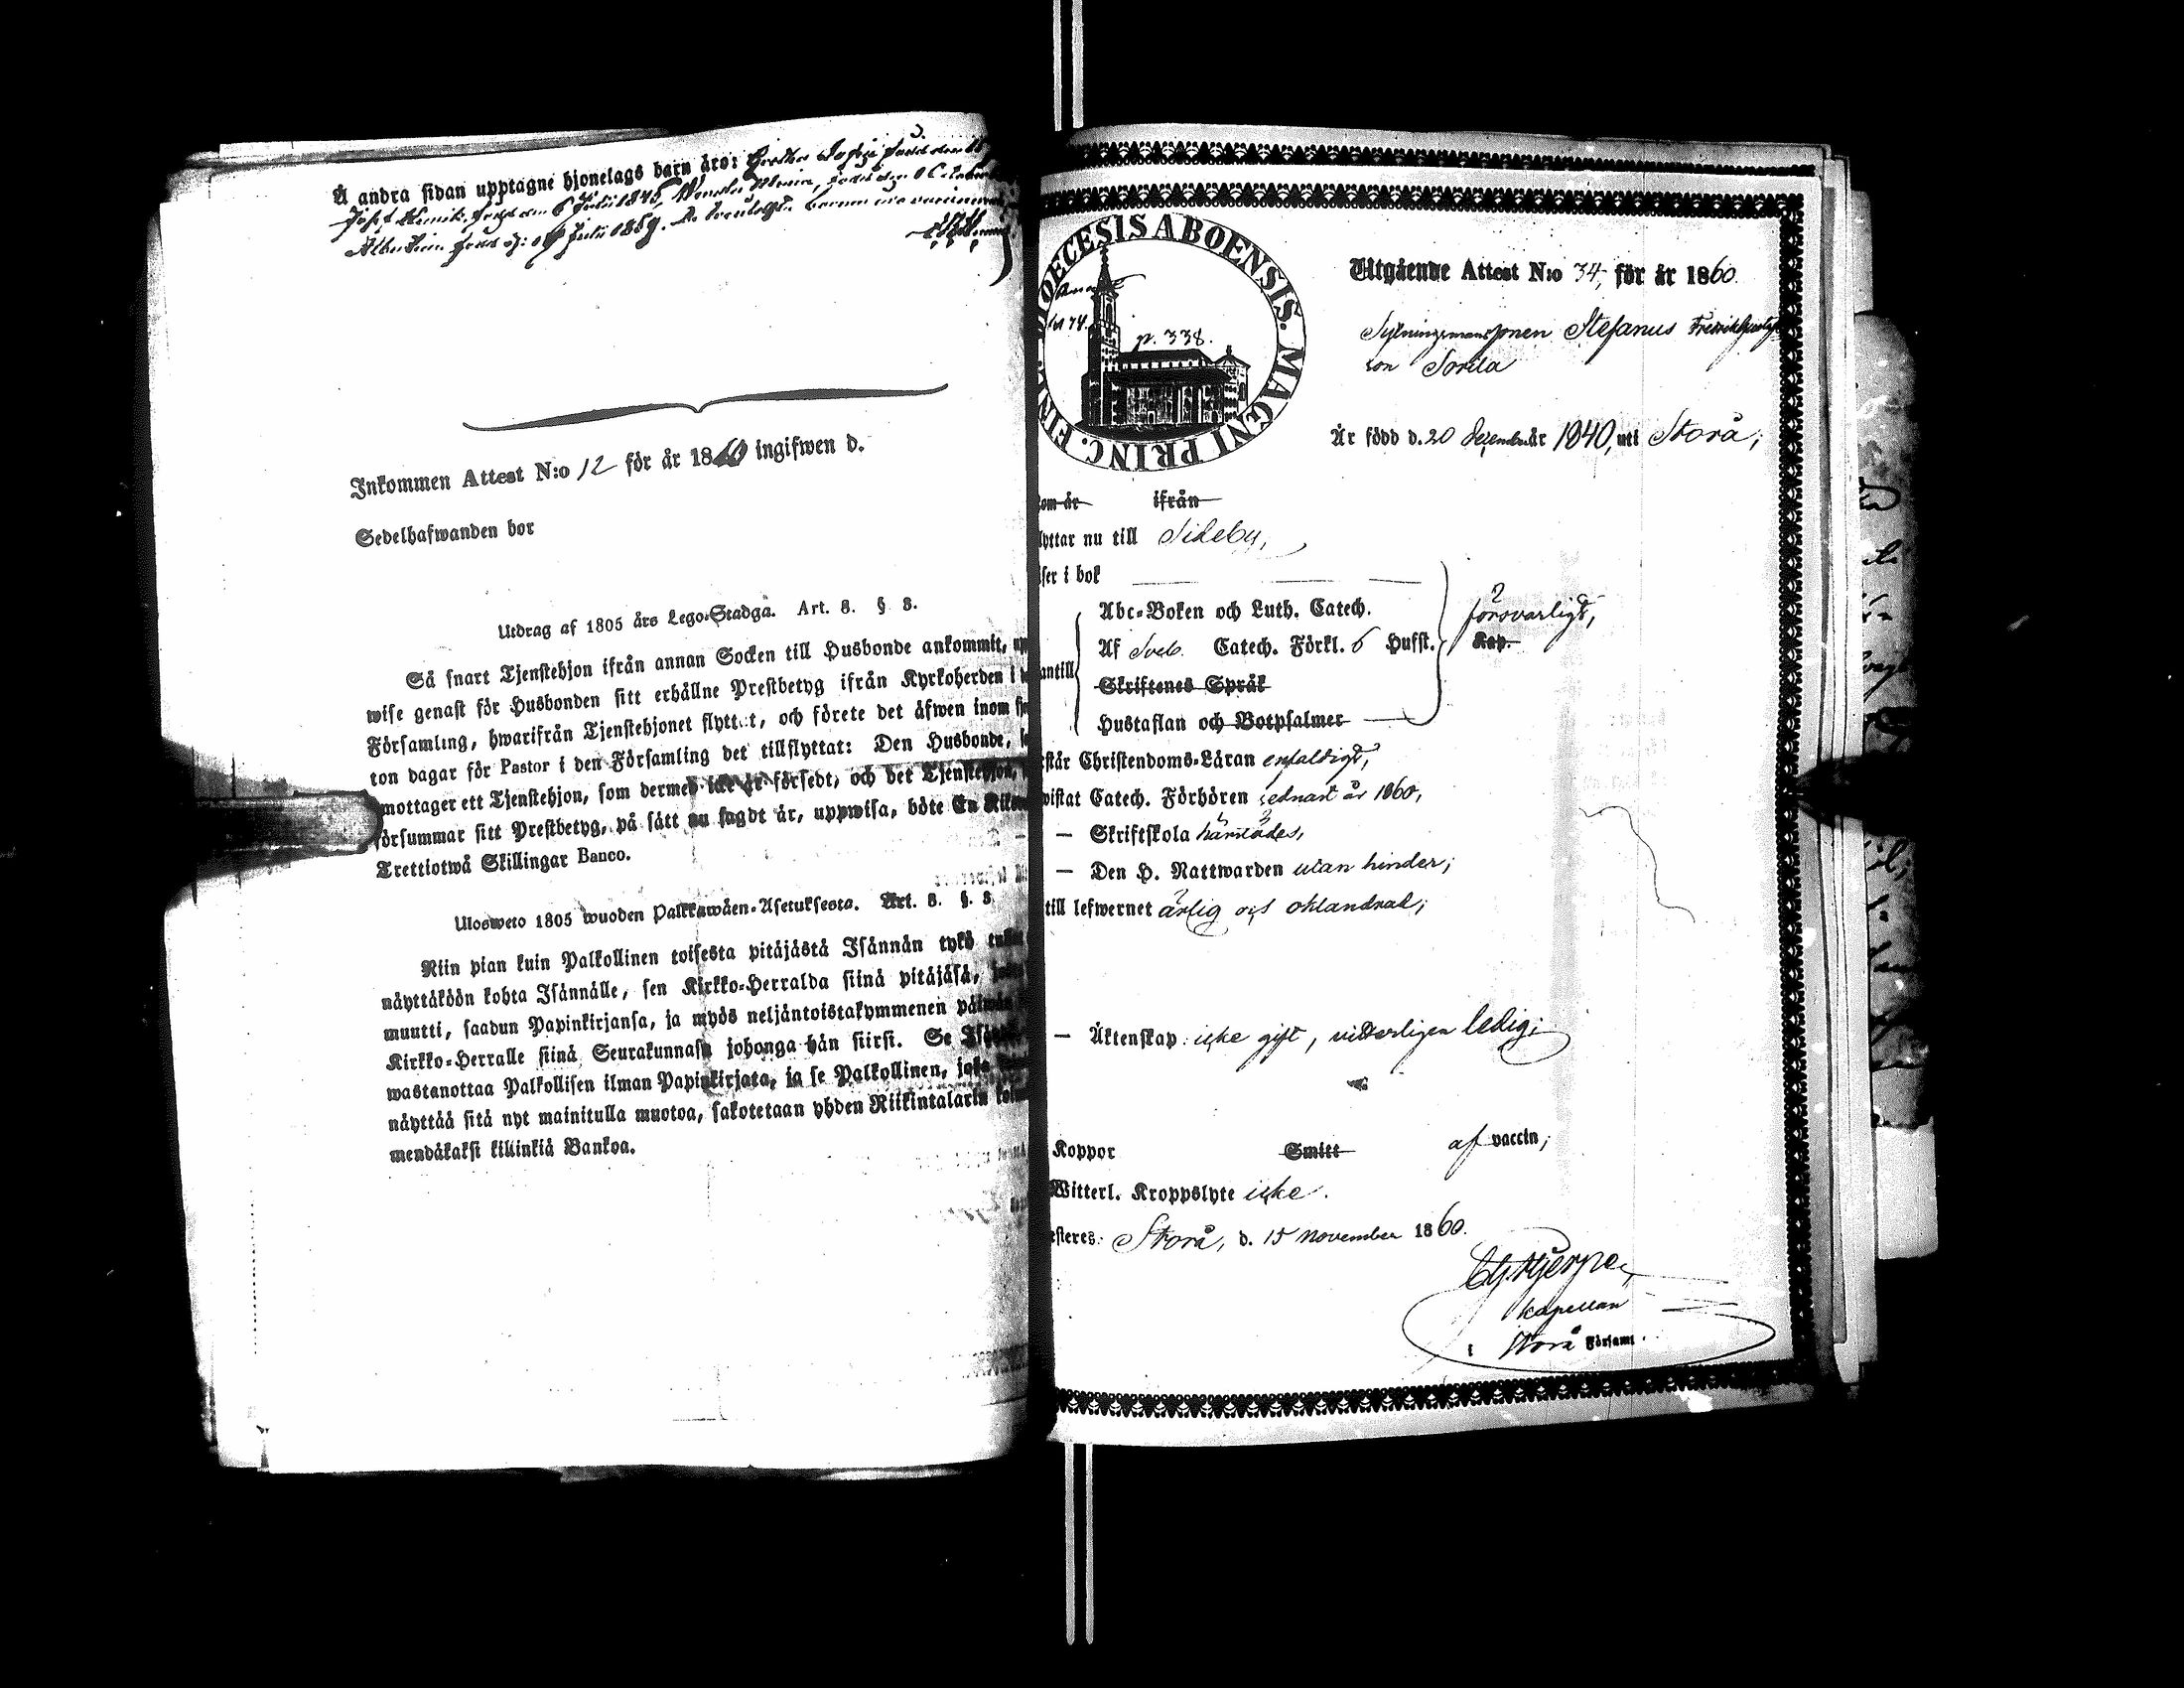 Å andra sidan upptagne hjonelags barn äro: Gretha Sophi född den
Josef Henrik, född den 6 Julii 1845, Maria, född den 6 October
Albertina född d: 19 Julii 1859. Barnen äro vaccinerade
Inkommen Attest N:o 12 för år 1860 ingifwen d.
Sedelhafwanden bor
Utdrag af 1805 års Lego-Stadga. Art. 8. § 8.
Så snart Tjenstehjon ifrån annan Socken till Husbonde ankommit,
wise genast för Husbonden sitt erhållne Prestbetyg ifrån Kyrkoherden i
Församling, hwarifrån Tjenstehjonet flyttat, och förete det äfwen inom
ton dagar för Pastor i den Församling det tillflyttat: Den Husbonde,
mottager ett Tjenstehjon, som dermed icke är försedt, och det Tjenstehjon,
försummar sitt Prestbetyg, på sätt nu sagdt är, uppwisa, böte En
Trettiotwå Skillingar Banco.
Ulosweto 1805 wuoden Palkkawäen-Asetuksesta. Art. 8. §. 8
Niin pian kuin Palkollinen toisesta pitäjästä Isännän tykö
näyttäköön kohta Isännälle, sen Kirkko-Herralda siinä pitäjäsä,
muutti, saadun Papinkirjansa, ja myös neljäntoistakymmenen päiwän
Kirkko-Herralle siinä Seurakunnasa johonga hän siirsi. Se
wastanottaa Palkollisen ilman Papinkirjata, ja se Palkollinen, joka
näyttää sitä nyt mainitulla muotoa, sakotetaan yhden Riikintalarin
mendäkaksi killinkiä Bankoa.
DIOECESIS ABOENSIS. MAGNI PRINC. FINL.
p. 338.
Utgående Attest N:o 34, för år 1860.
Sytningsmanssonen Stefanus Fredrik Gustafs
son Sorila
Är född d. 20 December år 1840, uti Storå;
kom år ifrån
flyttar nu till Sideby,
läser i bok
Abc-Boken och Luth. Catech. försvarligt,
Af Sveb. Catech. Förkl. 6 Hufst. Kap.
antill
Skriftenes Språk
Hustaflan och Botpsalmer
står Christendoms-Läran enfaldigt,
wistat Catech. Förhören sednast år 1860,
— Skriftskola härstädes,
— Den H. Nattwarden utan hinder;
till lefwernet ärlig och oklandrad;
— Äktenskap: icke gift, vitterligen ledig;
Koppor Smitt af vaccin;
Witterl. Kroppslyte icke.
esteres: Storå, d. 15 November 1860.
Kapellan
i Storå Församl.